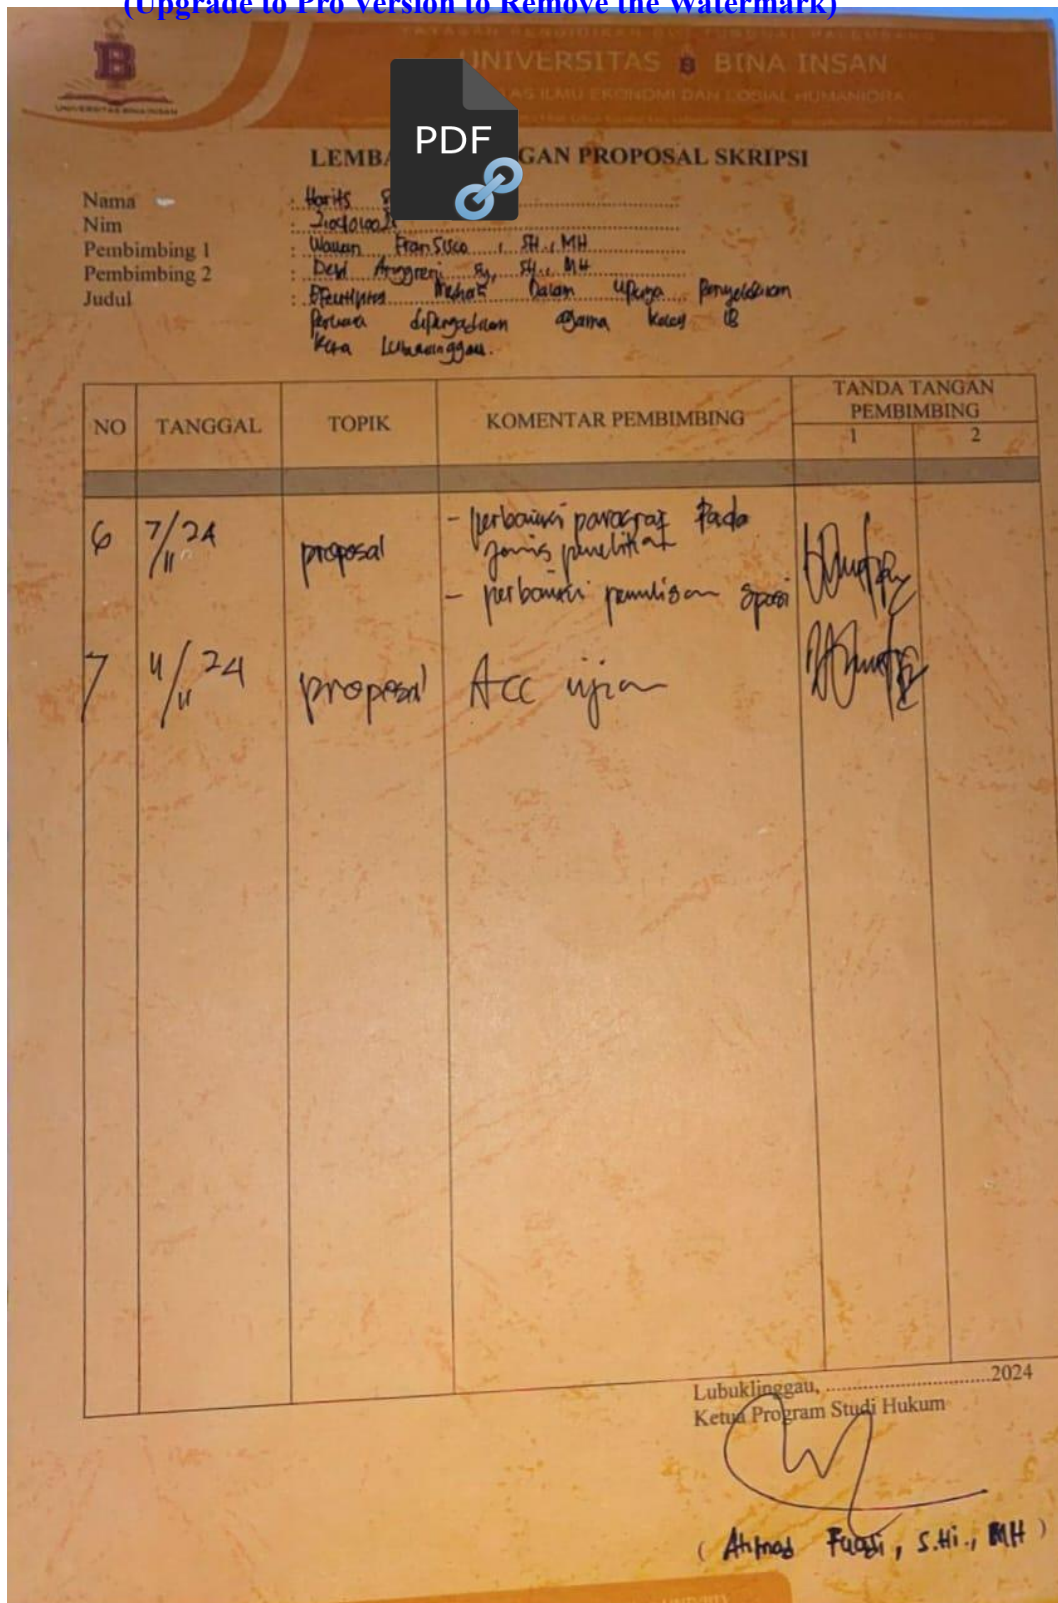 (Upgrade to Pro Version to Remove the Watermark)
UNIVERSITAS BINA INSAN
ILMU EKONOMI DAN SOSIAL HUMANIORA
UNIVERSITAS BINA INSAN
PDF
LEMBA GAN PROPOSAL SKRIPSI
Nama : Harits
Nim :
Pembimbing 1 : Wawan Fransisco, SH., MH
Pembimbing 2 : Devi Anggreni Sy, SH., MH
Judul : Dalam Upaya
agama kelas IB
Kota Lubuklinggau.
NO TANGGAL TOPIK KOMENTAR PEMBIMBING TANDA TANGAN PEMBIMBING
1 2
6 7/11 24 proposal - perbaiki paragraf Pada
jenis penelitian
- perbaiki penulisan spasi
7 11/11 24 proposal Acc ujian
Lubuklinggau, ..............................2024
Ketua Program Studi Hukum
( Ahmad Fuadi, S.Hi., MH )